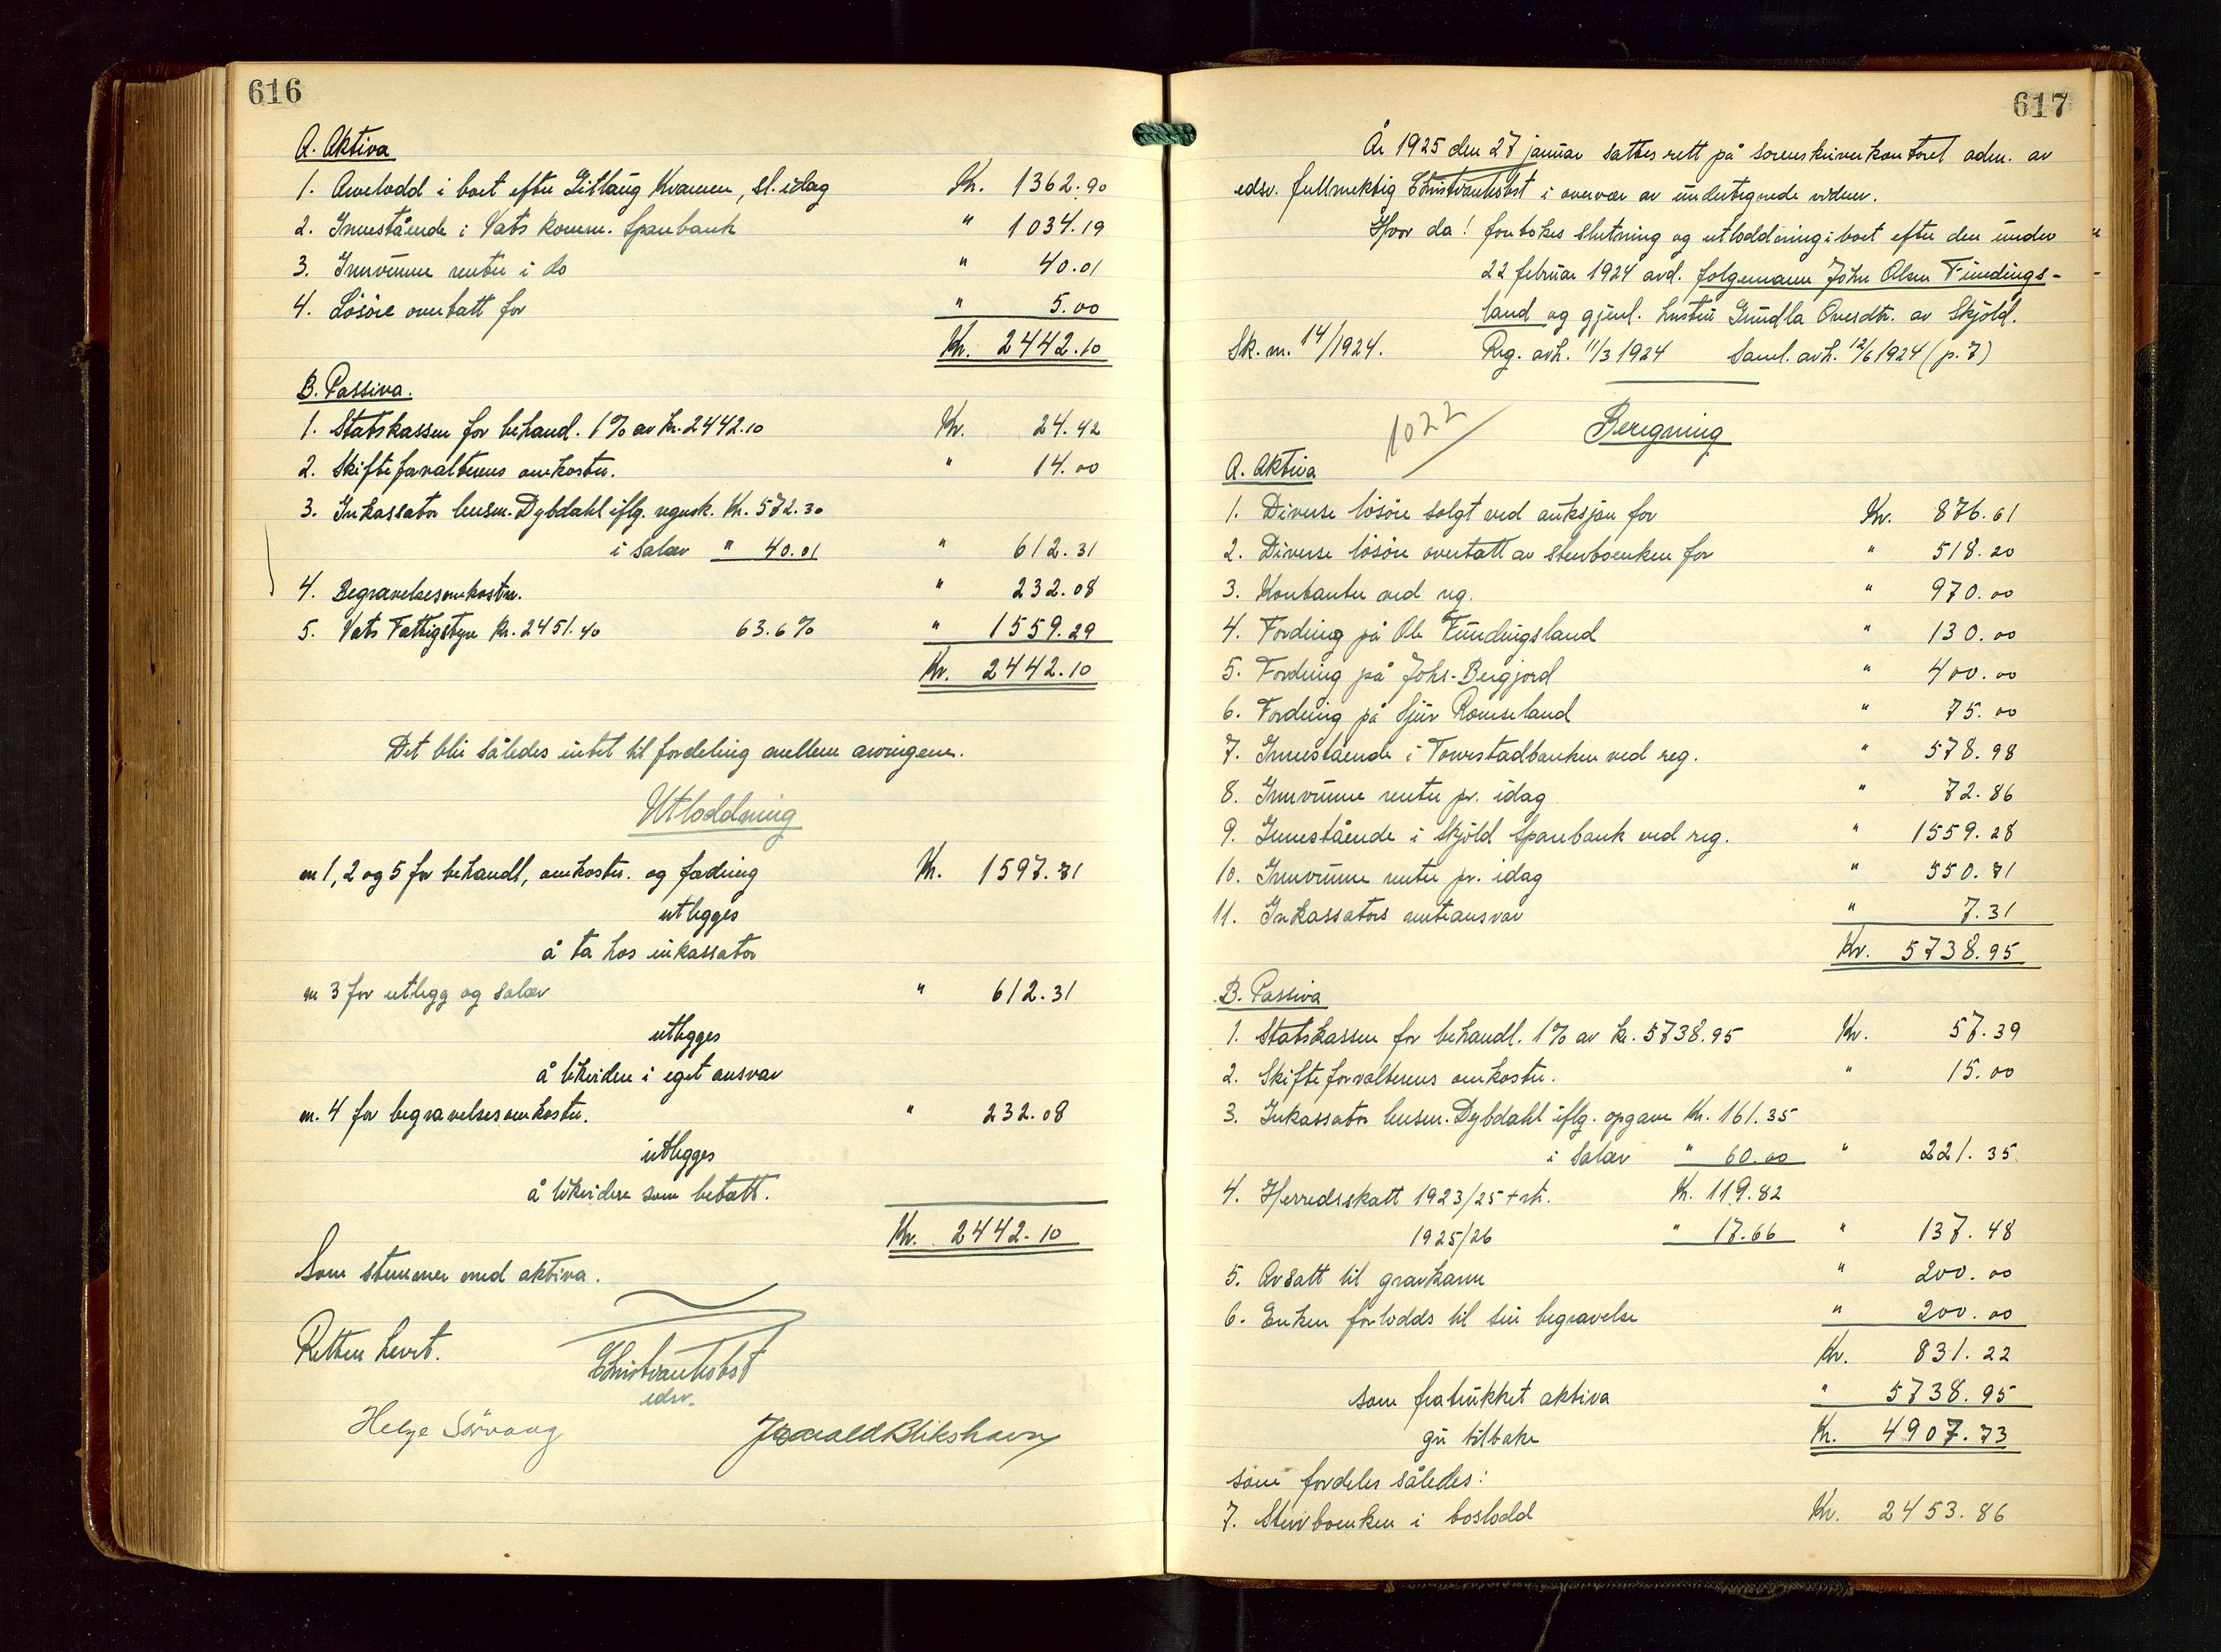 616
A. Aktiva
1. Arvelodd i boet efter Gitlaug Kvamen, sl. idag Kr. 1362.90
2. Innestående i Vats komm. Sparebank " 1034.19
3. Innvunne renter i do " 40.01
4. Lösöre overtatt for " 5.00
Kr. 2442.10
B. Passiva.
1. Statskassen for behand. 1% av kr. 2442.10 Kr. 24.42
2. Skifteforvalterens omkostn. " 14.00
3. Inkassator lensm. Dybdahl iflg. regnsk. Kr. 572.30
i salær " 40.01 " 612.31
4. Begravelsesomkostn. " 232.08
5. Vats Fattigstyre kr. 2451.40 63.6% " 1559.29
Kr. 2442.10
Det blir således intet til fordeling mellem arvingene.
Utloddning
nr 1, 2 og 5 for behandl, omkostn. og fordring Kr. 1597.71
utlegges
å ta hos inkassator
nr 3 for utlegg og salær " 612.31
utlegges
å likvidere i eget ansvar
nr. 4 for begravelsesomkostn. " 232.08
utlegges
å likvidere som betalt.
Kr. 2442.10
Som stemmer med aktiva.
Retten hevet.
edsv.
Helge Sörvaag
617
År 1925 den 27 januar sattes rett på sorenskriverkontoret adm. av
edsv. fullmektig i overvær av undertegnede vidner.
Hvor da! foretokes slutning og utloddning i boet efter den under "
22 februar 1924 avd. folgemann John Olsen Fundings- -
land og gjenl. hustru Gundla Oversdtr. av Skjöld.
Sk. nr. 14/1924. Reg. avh. 11/3 1924 Saml. avh. 12/6 1924 (p. 7)
1022
Beregning
A. Aktiva
1. Diverse lösöre solgt ved auksjon for Kr. 876.61
2. Diverse lösöre overtatt av sterboenken for " 518.20
3. Kontanter ved reg. " 970.00
4. Fordring på Ole Fundingsland " 130.00
5. Fordring på Johs. Bergjord " 400.00
6. Fordring på Sjur Romseland " 75.00
7. Innestående i Torvestadbanken ved reg. " 578.98
8. Innvunne renter pr. idag " 72.86
9. Innestående i Skjöld Sparebank ved reg. " 1559.28
10. Innvunne renter pr. idag " 550.71
11. Inkassators renteansvar " 7.31
Kr. 5738.95
B. Passiva
1. Statskassen for behandl. 1% av kr. 5738.95 Kr. 57.39
2. Skifteforvalterens omkostn. " 15.00
3. Inkassator lensm. Dybdahl iflg. opgave Kr. 161.35
i salær " 60.00 " 221.35
4. Herredsskatt 1923/25 + rtr. Kr. 119.82
1925/26 " 17.66 " 137.48
5. Avsatt til gravkarm " 200.00
6. Enken forlodds til sin begravelse " 200.00
Kr. 831.22
som fratrukket aktiva " 5738.95
gir tilbake Kr. 4907.73
som fordeles således:
7. Sterboenken i boslodd Kr. 2453.86